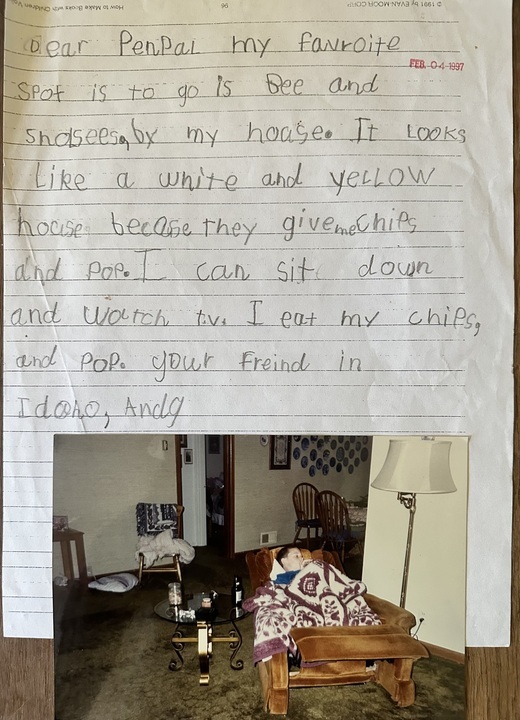 © 1991 by EVAN-MOOR CORP. 96 How to Make Books with Children
Dear PenPal my favroite
FEB. 04 1997
Spot is to go is Bee and
by my house. It Looks
Like a white and yeLLOW
house becase they give me chips
and pop. I can sit down
and watch t.v. I eat my chips,
and pop. your freind in
Idaho, Andy